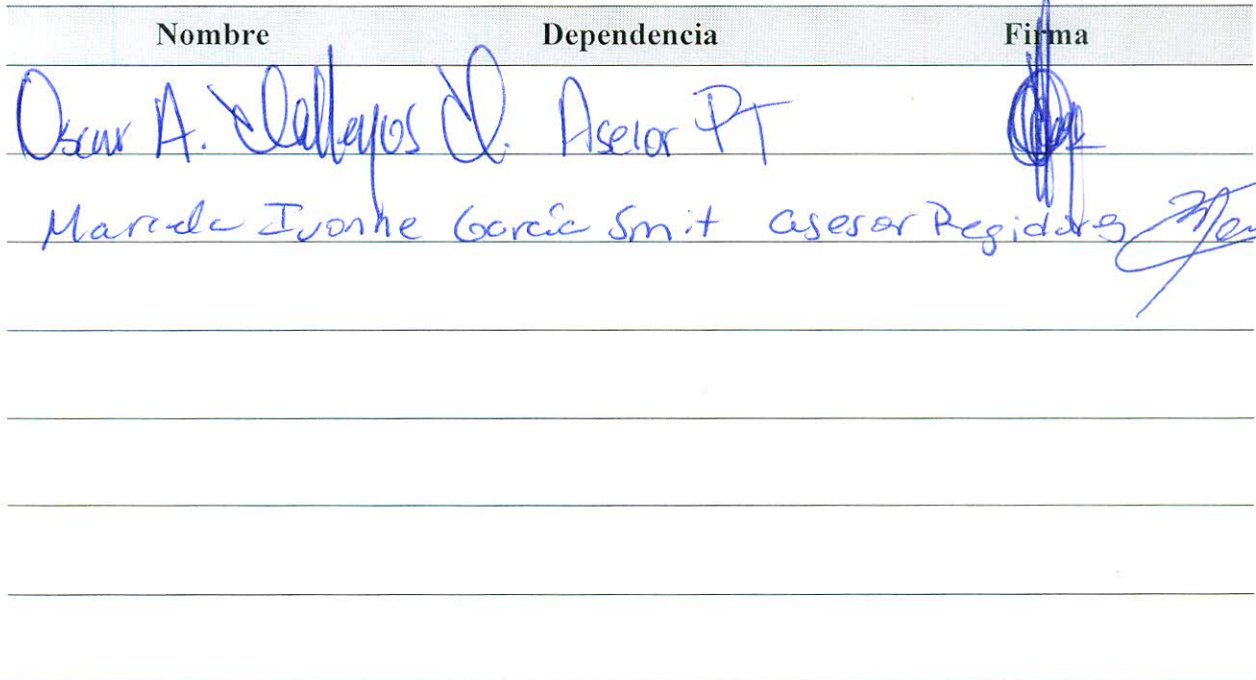 Nombre Dependencia Firma
Oscar A. Vallejos V. Aselor PT
Marcela Ivonne García Smit asesor Regidores